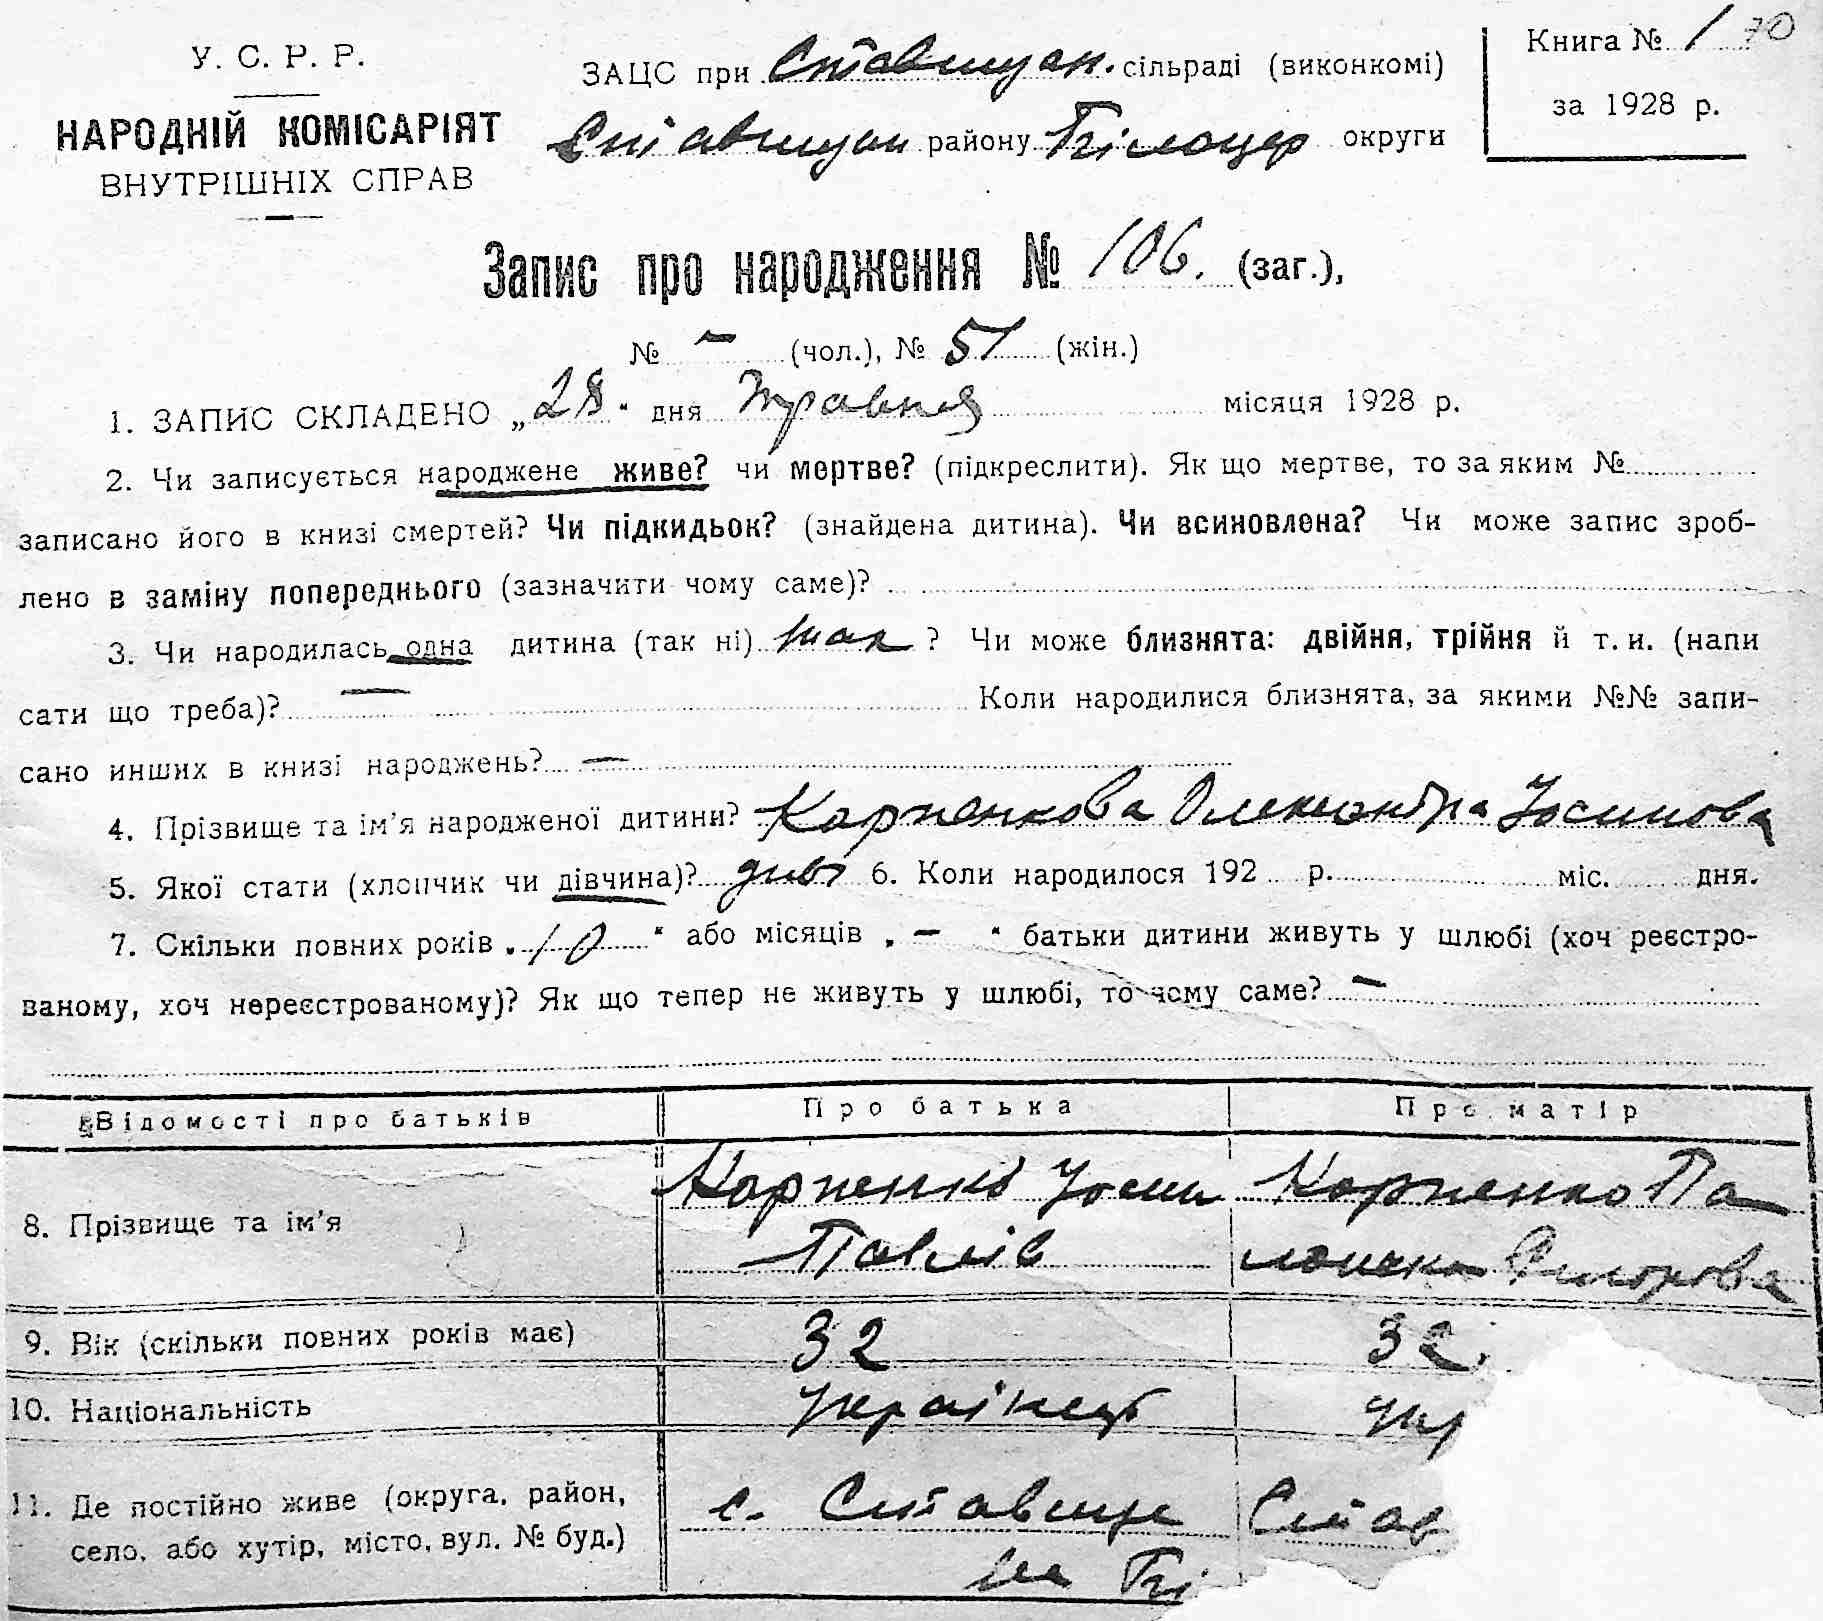 У. С. Р. Р.
НАРОДНІЙ КОМІСАРІЯТ
ВНУТРІШНІХ СПРАВ
ЗАЦС при Ставищан. сільраді (виконкомі)
Ставищан району Білоцер округи
Книга № 1 70
за 1928 р.
Запис про народження № 106. (заг.),
№ – (чол.), № 51 (жін.)
1. ЗАПИС СКЛАДЕНО „28“ дня Травня місяця 1928 р.
2. Чи записується народжене живе? чи мертве? (підкреслити). Як що мертве, то за яким №
записано його в книзі смертей? Чи підкидьок? (знайдена дитина). Чи всиновлена? Чи може запис зроб-
лено в заміну попереднього (зазначити чому саме)?
3. Чи народилась одна дитина (так ні) так ? Чи може близнята: двійня, трійня й т. и. (напи
сати що треба)? — Коли народилися близнята, за якими №№ запи-
сано инших в книзі народжень? —
4. Прізвище та ім'я народженої дитини? Карпенкова Олександра Йосипова
5. Якої стати (хлопчик чи дівчина)? 6. Коли народилося 192 р. міс. дня.
7. Скільки повних років „10“ або місяців „–“ батьки дитини живуть у шлюбі (хоч реєстро-
ваному, хоч нереєстрованому)? Як що тепер не живуть у шлюбі, то чому саме? –
Відомості про батьків Про батька Про матір
8. Прізвище та ім'я Карпенко Йосип Карпенко Па
Павлів
9. Вік (скільки повних років має) 32 32.
10. Національність Українець Укр
11. Де постійно живе (округа, район, с. Ставище Став
село, або хутір, місто, вул. № буд.) на Бі